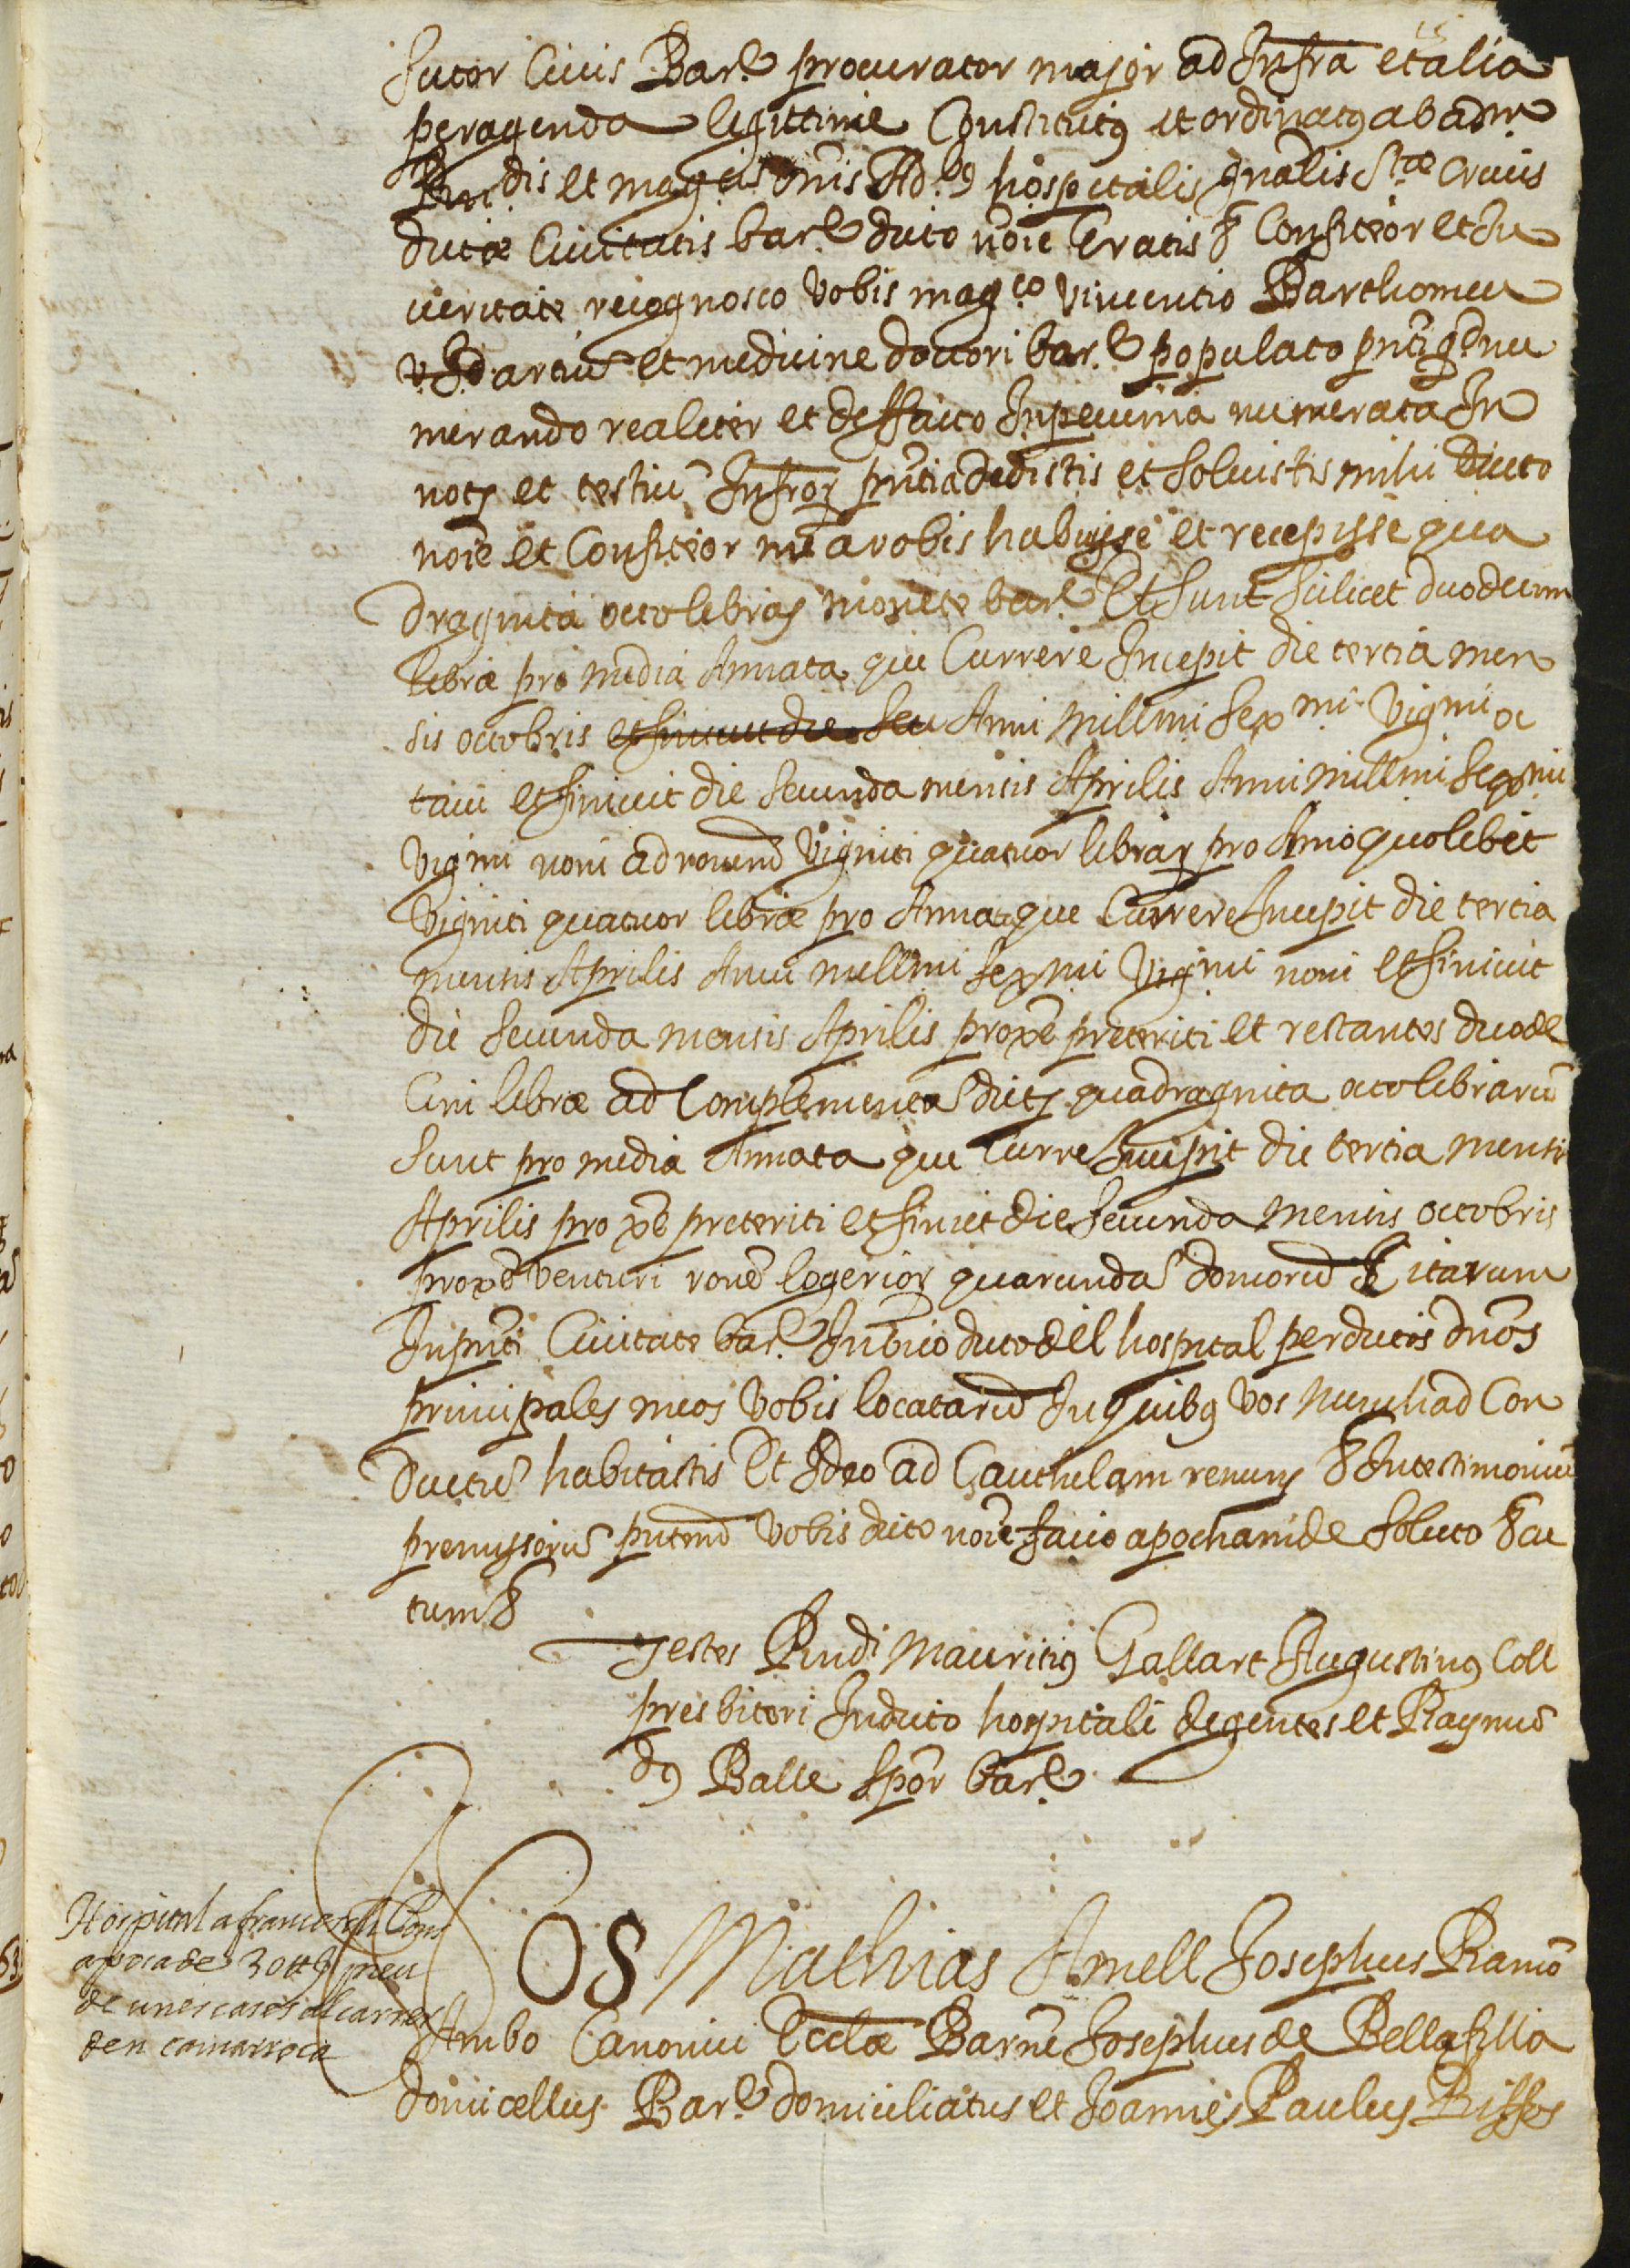 15
sutor Civis Bar.e procurator major ad Infra et alia
peragenda legittime Constitutus et ordinatus ab adm.
Rndis et magcis dnis Ad.s hospitalis gnalis Stae Crucis
dictae Civitatis bar.e dicto noie Gratis & Confiteor et In
veritate recognosco Vobis magco Vincentio Barthomeu
artiu et medicine doctori bar.e populato pnti et nu
merando realiter et de ffacto In pecunia numerata In
notj et testiu Infror pntia dedistis et Solvistis mihi Dicto
noie et Confiteor me a vobis habuisse et recepisse qua
draginta octo lebras monete bar.e Et Sunt Scilicet duodecim
lebrae pro media Annata que Currere Incepit die tertia men
sis octobris et finivit die Secu Anni millmi Sexmi Vigmi oc
tavi et finivit die Secunda mensis Aprilis Anni millmi Sexmi
Vigmi noni ad ronem Viginti quatuor librar pro Anno quolibet
Viginti quatuor librae pro Annata que Currere Incepit die tertia
mensis Aprilis Anni millmi Sexmi Vigmi noni et finivit
die Secunda mensis Aprilis proxe preteriti et restantes duode
Cim librae ad Complementu dictj quadraginta octo librarum
Sunt pro media Annata que Curre Incipit die tertia mensis
Aprilis proxe preteriti et finiet die Secunda mensis octobris
proxe Venturi rone logerior quarunda domorum Sitarum
In pnti Civitate bar.e In vico dicto del hospital per dictos dnos
principales meos Vobis locatarum In quibus vos nunch ad Con
ductum habitastis Et Ideo ad Cauthelam renuns & In testimonium
premissorum pntem Vobis dicto noie facio apocham de Soluto & ac
tum &
Testes Rndi Mauritius Gallart Augustinus Coll
presbiteri In dicto hospitali degentes et Raymun
dus Balle Spor bar.e
Hospital a Com
apoca de 30 ll preu
de unes cases al carrer
den camarroca
NOS Mathias Amell Josephus Ramo
Ambo Canonici Ecclae Barne Josephus de Bellafilla
domicellus Bar.e domiciliatus et Joannes Paulus Riffos